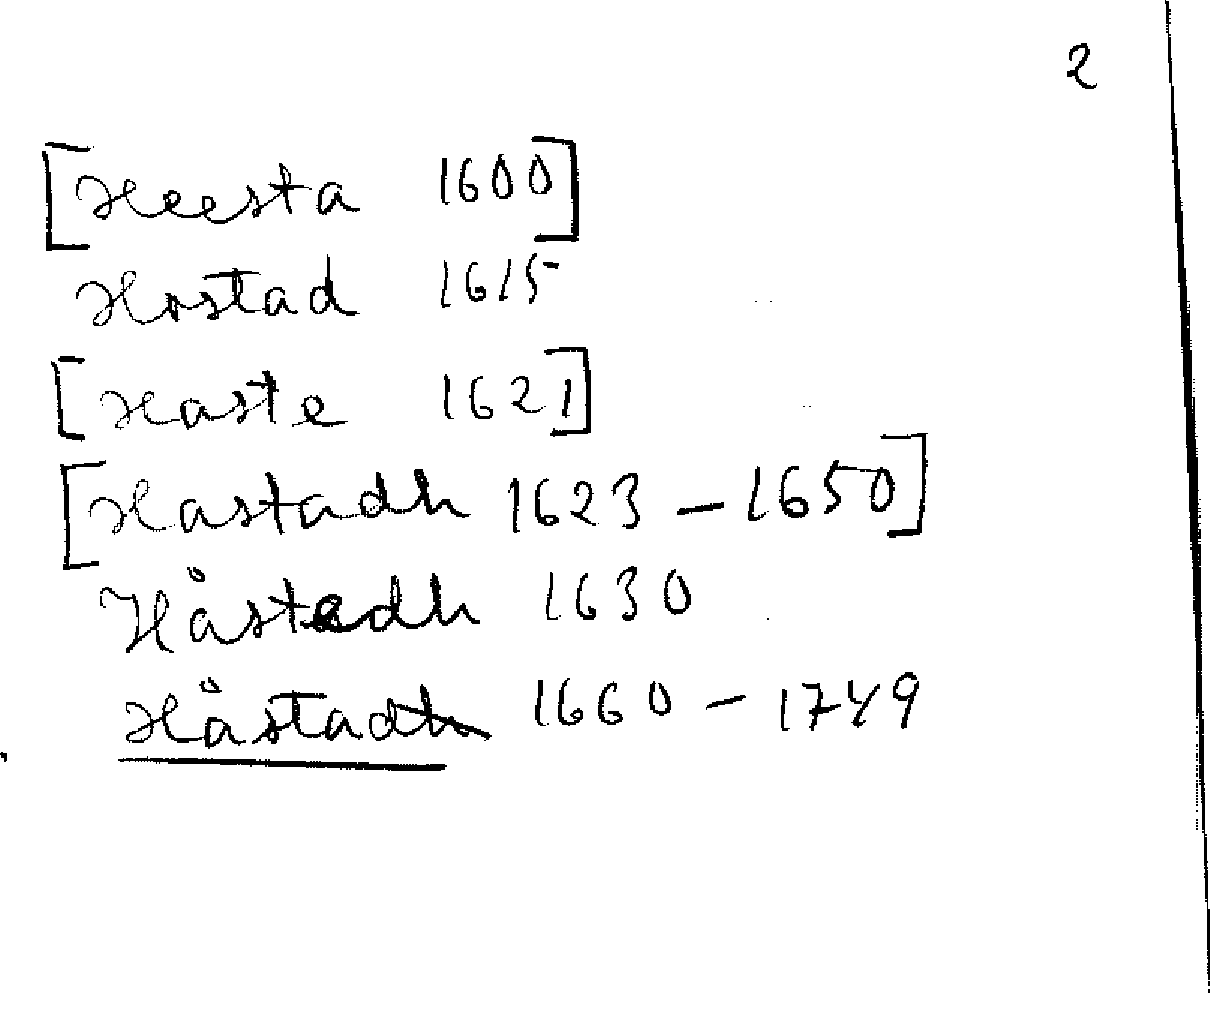 2
[Heesta 1600]
Hostad 1615
[Haste 1621]
[Hastadh 1623 – 1650]
Håstedh 1630
Håstad 1660 – 1749